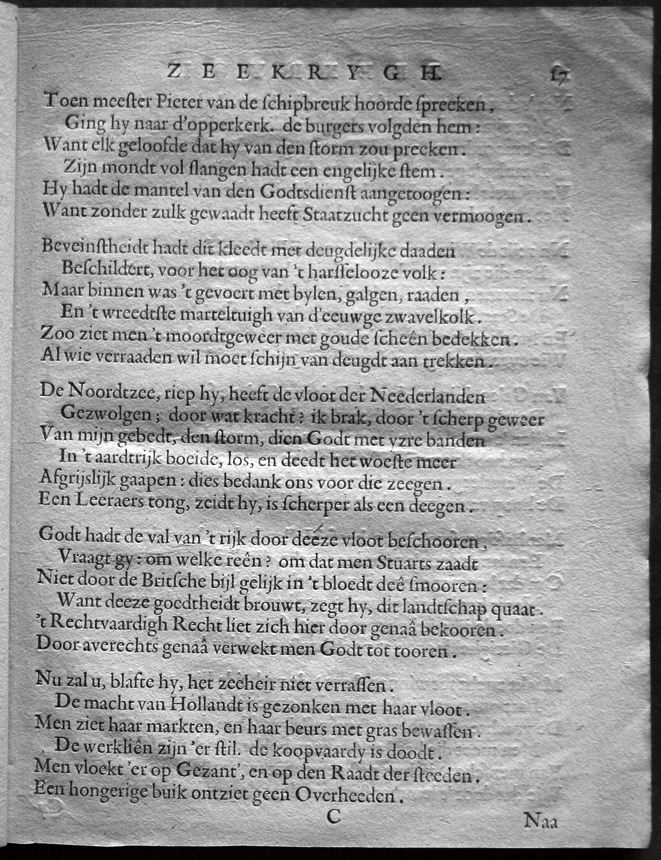 ZEEKRYGH. 17
Toen meeſter Pieter van de ſchipbreuk hoorde ſpreeken,
Ging hy naar d'opperkerk. de burgers volgden hem:
Want elk geloofde dat hy van den ſtorm zou preeken.
Zijn mondt vol ſlangen hadt een engelijke ſtem.
Hy hadt de mantel van den Godtsdienſt aangetoogen:
Want zonder zulk gewaadt heeft Staatzucht geen vermoogen.
Beveinſtheidt hadt dit kleedt met deugdelijke daaden
Beſchildert, voor het oog van 't harſſelooze volk:
Maar binnen was 't gevoert met bylen, galgen, raaden,
En 't wreedtſte marteltuigh van d'eeuwge zwavelkolk.
Zoo ziet men 't moordtgeweer met goude ſcheên bedekken.
Al wie verraaden wil moet ſchijn van deugdt aan trekken.
De Noordtzee, riep hy, heeft de vloot der Neederlanden
Gezwolgen; door wat kracht? ik brak, door 't ſcherp geweer
Van mijn gebedt, den ſtorm, dien Godt met yzre banden
In 't aardtrijk boeide, los, en deedt het woeſte meer
Afgrijslijk gaapen: dies bedank ons voor die zeegen.
Een Leeraers tong, zeidt hy, is ſcherper als een deegen.
Godt hadt de val van 't rijk door deeze vloot beſchooren,
Vraagt gy: om welke reên? om dat men Stuarts zaadt
Niet door de Britſche bijl gelijk in 't bloedt deê ſmooren:
Want deeze goedtheidt brouwt, zegt hy, dit landtſchap quaat.
't Rechtvaardigh Recht liet zich hier door genaâ bekooren.
Door averechts genaâ verwekt men Godt tot tooren.
Nu zal u, blafte hy, het zeeheir niet verraſſen.
De macht van Hollandt is gezonken met haar vloot.
Men ziet haar markten, en haar beurs met gras bewaſſen.
De werkliên zijn 'er ſtil. de koopvaardy is doodt.
Men vloekt 'er op Gezant', en op den Raadt der ſteeden.
Een hongerige buik ontziet geen Overheeden.
C Naa